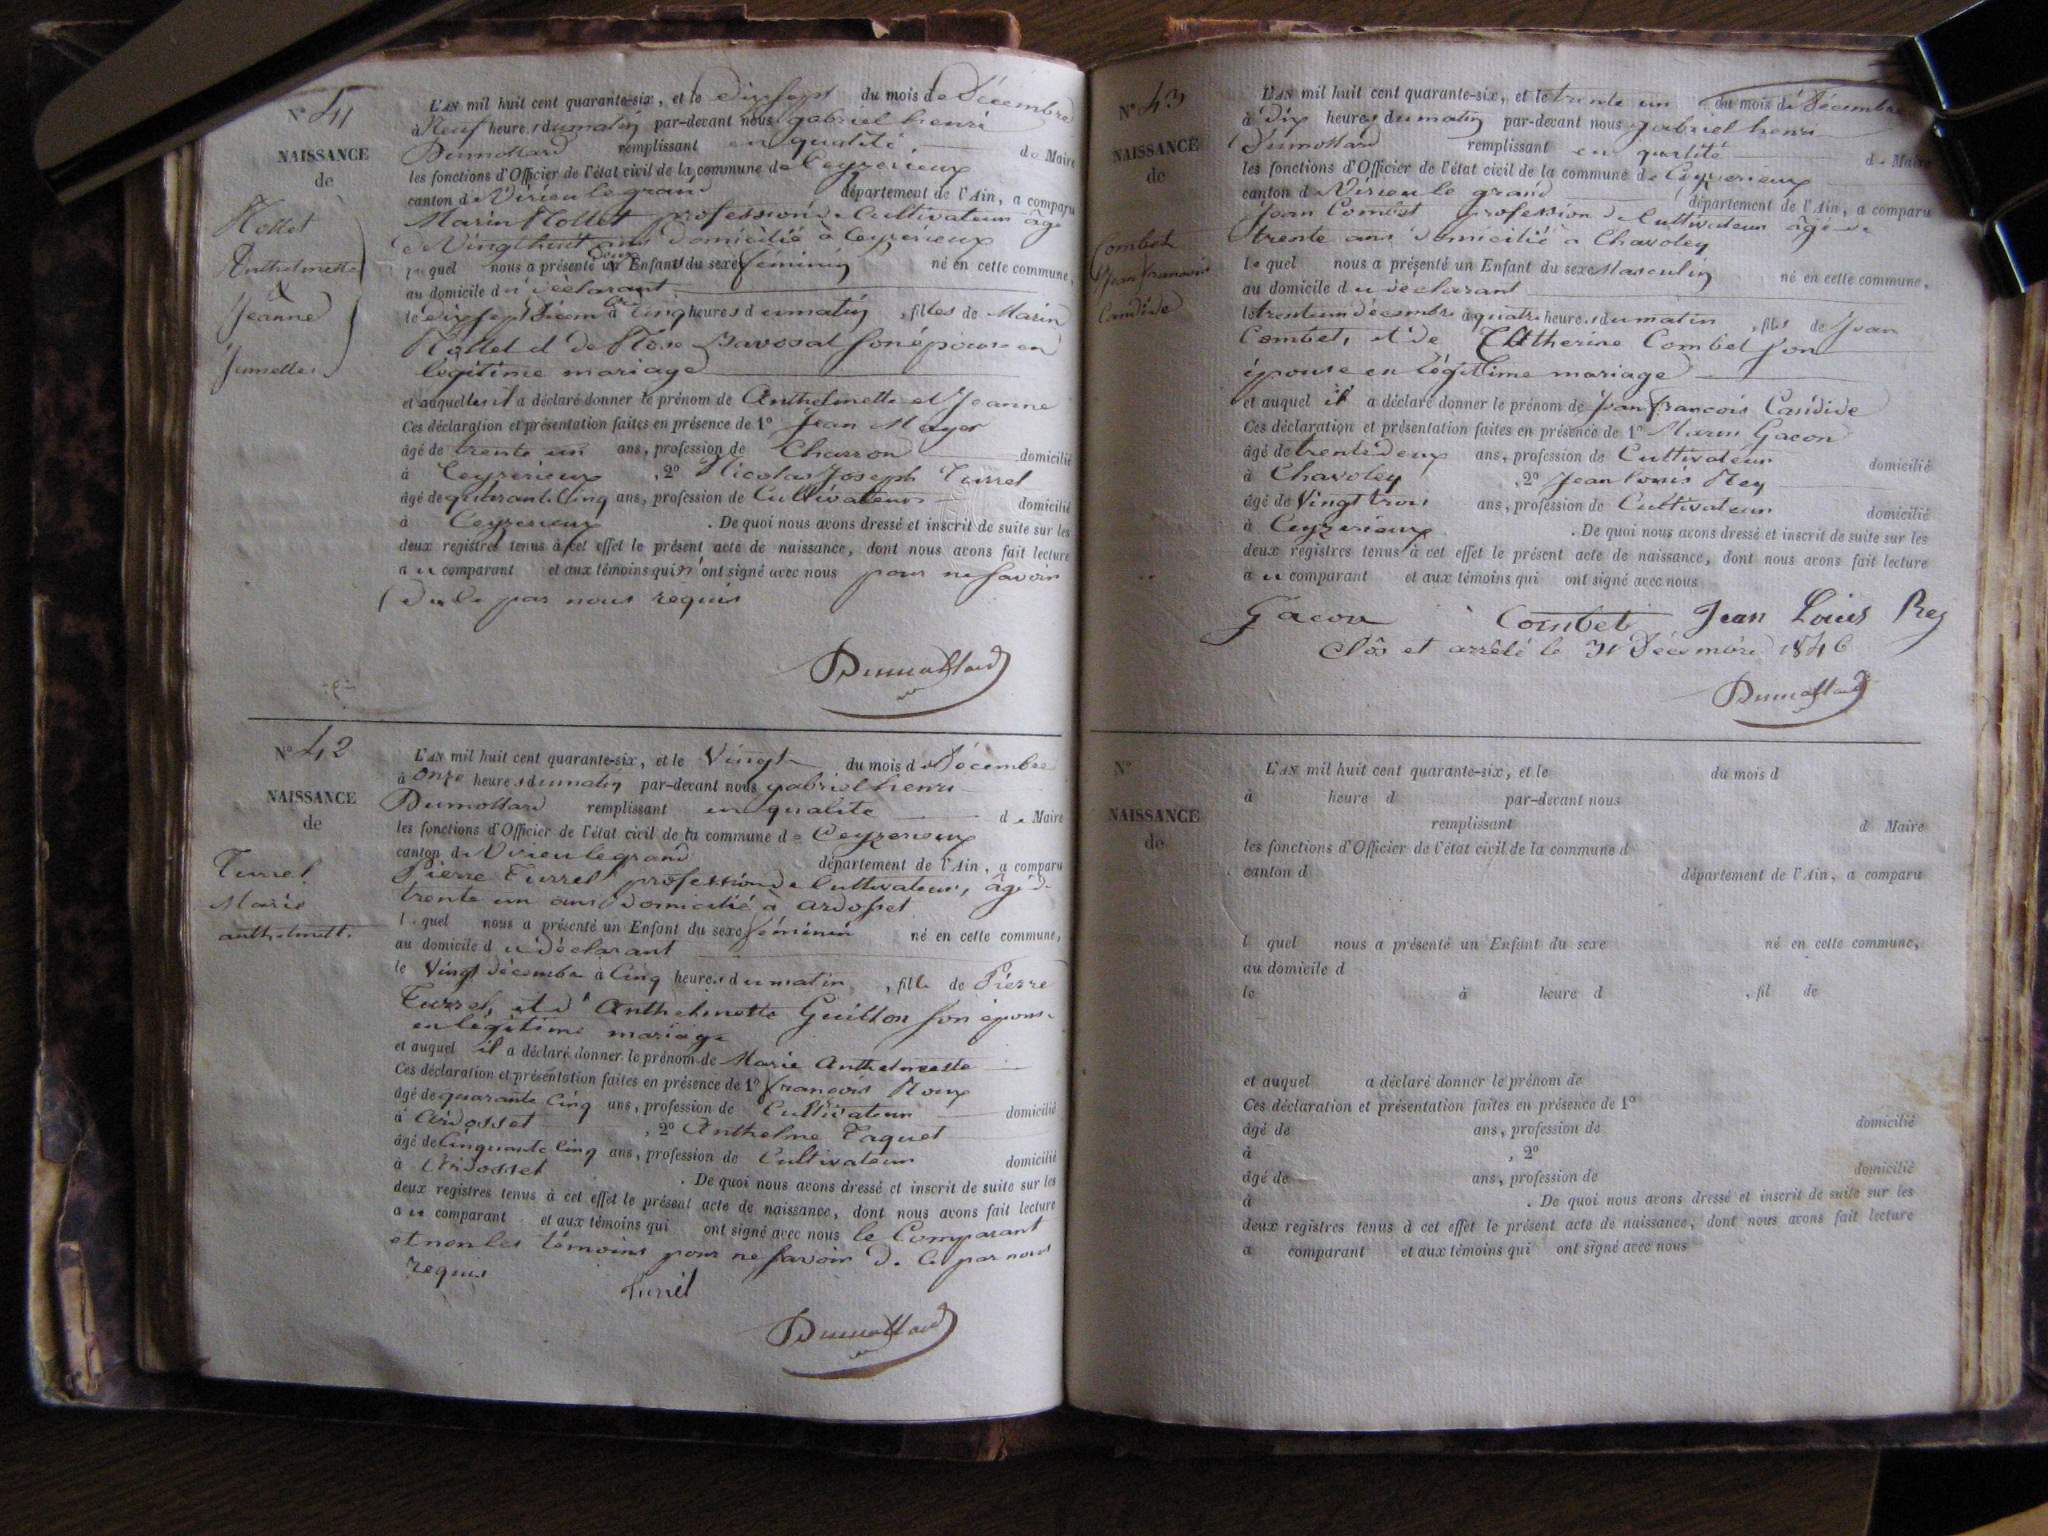 N° 41
NAISSANCE
de
Anthelmette
&
Jeanne
Jumelles
L'AN mil huit cent quarante-six, et le dix sept du mois de Décembre
à Neuf heures du matin par-devant nous gabriel henri
Dumollard remplissant en qualité de Maire
les fonctions d'Officier de l'état civil de la commune de Ceyzerieux
canton de Virieu le grand département de l'Ain, a comparu
Marin profession de Cultivateur âgé
de Vingt huit ans domicilié à Ceyzerieux
lequel nous a présenté deux Enfants du sexe féminin né en cette commune,
au domicile du déclarant
le dix sept Décembre à Cinq heures du matin, filles de Marin
et de son épouse en
légitime mariage
et auquelles il a déclaré donner le prénom de Anthelmette et Jeanne
Ces déclaration et présentation faites en présence de 1° Jean Mayer
âgé de trente un ans, profession de Charron domicilié
à Ceyzerieux, 2° Nicolas Joseph Turrel
âgé de quarante Cinq ans, profession de Cultivateur domicilié
à Ceyzerieux. De quoi nous avons dressé et inscrit de suite sur les
deux registres tenus à cet effet le présent acte de naissance, dont nous avons fait lecture
au comparant et aux témoins qui n'ont signé avec nous pour ne savoir
de ce par nous requis
Dumollard
N° 42
NAISSANCE
de
Turrel
Marie
anthelmette
L'AN mil huit cent quarante-six, et le Vingt du mois de Décembre
à onze heures du matin par-devant nous gabriel henri
Dumollard remplissant en qualité de Maire
les fonctions d'Officier de l'état civil de la commune de Ceyzerieux
canton de Virieu le grand département de l'Ain, a comparu
Pierre Turrel profession de Cultivateur, âgé de
trente un ans domicilié à ardosset
lequel nous a présenté un Enfant du sexe féminin né en cette commune,
au domicile du déclarant
le Vingt décembre à Cinq heures du matin, fille de Pierre
Turrel, et d'Anthelmette Guillon son épouse
en légitime mariage
et auquel il a déclaré donner le prénom de Marie Anthelmette
Ces déclaration et présentation faites en présence de 1° francois Roux
âgé de quarante Cinq ans, profession de Cultivateur domicilié
à Ardosset, 2° Anthelme Taquet
âgé de Cinquante Cinq ans, profession de Cultivateur domicilié
à Ardosset. De quoi nous avons dressé et inscrit de suite sur les
deux registres tenus à cet effet le présent acte de naissance, dont nous avons fait lecture
au comparant et aux témoins qui ont signé avec nous le Comparant
et non les témoins pour ne savoir de Ce par nous
requis
Turrel
Dumollard
N° 43
NAISSANCE
de
Combet
Jean francois
Candide
L'AN mil huit cent quarante-six, et le trente un du mois de Décembre
à dix heures du matin par-devant nous gabriel henri
Dumollard remplissant en qualité de Maire
les fonctions d'Officier de l'état civil de la commune de Ceyzerieux
canton de Virieu le grand département de l'Ain, a comparu
Jean Combet profession de Cultivateur âgé de
trente ans domicilié à Chavoley
lequel nous a présenté un Enfant du sexe Masculin né en cette commune,
au domicile du déclarant
le trente un décembre à quatre heures du matin, fils de Jean
Combet, et de Catherine Combet son
épouse en légitime mariage
et auquel il a déclaré donner le prénom de Jean francois Candide
Ces déclaration et présentation faites en présence de 1° Marin Gacon
âgé de trente deux ans, profession de Cultivateur domicilié
à Chavoley, 2° Jean louis Rey
âgé de Vingt trois ans, profession de Cultivateur domicilié
à Ceyzerieux. De quoi nous avons dressé et inscrit de suite sur les
deux registres tenus à cet effet le présent acte de naissance, dont nous avons fait lecture
au comparant et aux témoins qui ont signé avec nous
Gacon Combet Jean Louis Rey
Clôs et arrêté le 31 Décembre 1846
Dumollard
N°
NAISSANCE
de
L'AN mil huit cent quarante-six, et le du mois d
à heure d par-devant nous
remplissant d Maire
les fonctions d'Officier de l'état civil de la commune d
canton d département de l'Ain, a comparu
l quel nous a présenté un Enfant du sexe né en cette commune,
au domicile d
le à heure d , fil de
et auquel a déclaré donner le prénom de
Ces déclaration et présentation faites en présence de 1°
âgé de ans, profession de domicilié
à , 2°
âgé de ans, profession de domicilié
à . De quoi nous avons dressé et inscrit de suite sur les
deux registres tenus à cet effet le présent acte de naissance, dont nous avons fait lecture
a comparant et aux témoins qui ont signé avec nous